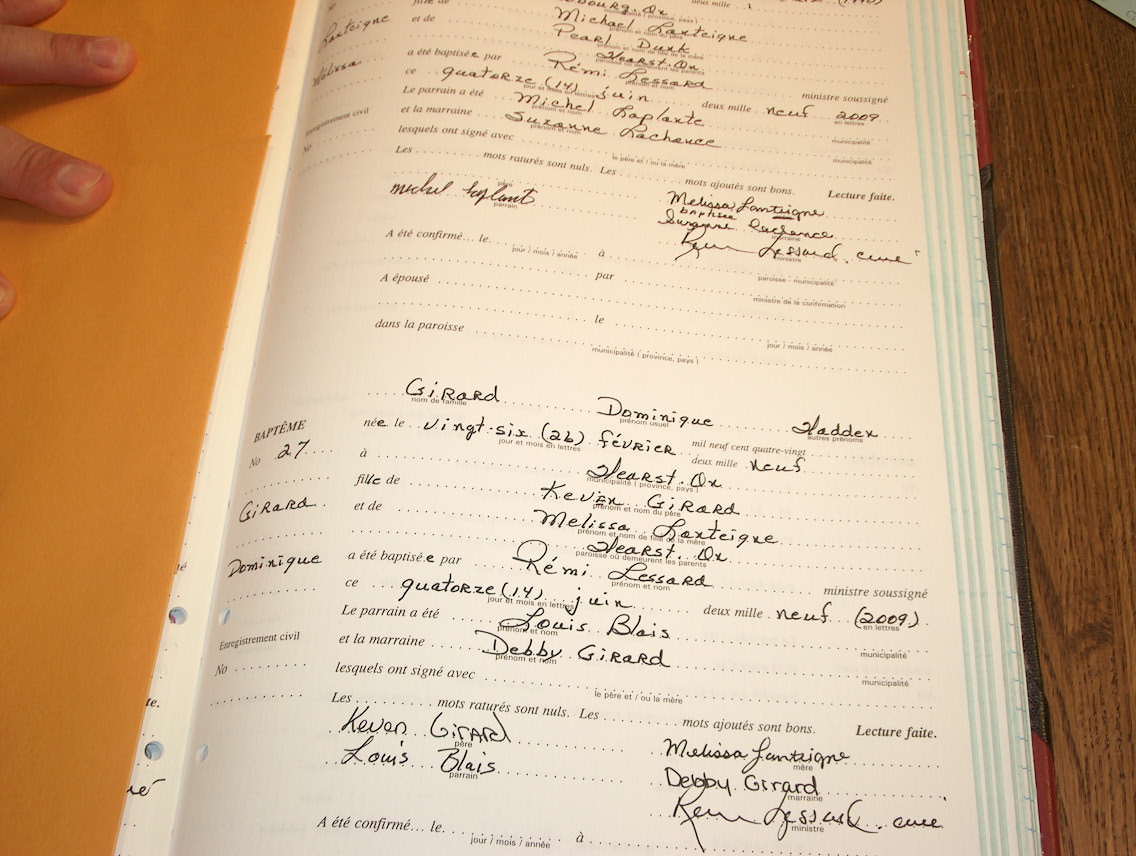 fille de
deux mille
(1990)
bourg. On
municipalité (province, pays)
Lanteigne
et de
Michael Lanteigne
prénom et nom du père
Pearl Dunk
prénom et nom de fille de la mère
Hearst. On
paroisse où demeurent les parents
Melissa
a été baptisée par Rémi Lessard ministre soussigné
prénom et nom
ce quatorze (14) juin deux mille neuf 2009
jour et mois en lettres
en lettres
Le parrain a été Michel Laplante
prénom et nom
municipalité
Enregistrement civil
et la marraine Suzanne Lachance
prénom et nom
municipalité
No
lesquels ont signé avec
le père et / ou la mère
Les mots raturés sont nuls. Les mots ajoutés sont bons. Lecture faite.
père
Michel Laplant
parrain
Melissa Lanteigne
baptisée
Suzanne Lachance
marraine
Lessard. curé
ministre
A été confirmé... le à
jour / mois / année
paroisse - municipalité
par
ministre de la confirmation
A épousé
le
jour / mois / année
dans la paroisse
municipalité (province, pays)
Girard Dominique Haddex
nom de famille prénom usuel autres prénoms
BAPTÊME
No 27
née le vingt-six (26) février mil neuf cent quatre-vingt
jour et mois en lettres
deux mille neuf
à Hearst. On
municipalité (province, pays)
Girard
fille de Keven Girard
prénom et nom du père
et de Melissa Lanteigne
prénom et nom de fille de la mère
Hearst. On
paroisse où demeurent les parents
Dominique
a été baptisé.e par Rémi Lessard ministre soussigné
prénom et nom
ce quatorze (14) juin deux mille neuf (2009)
jour et mois en lettres
en lettres
Le parrain a été Louis Blais
prénom et nom
municipalité
Enregistrement civil
et la marraine Debby Girard
prénom et nom
municipalité
No
lesquels ont signé avec
le père et / ou la mère
Les mots raturés sont nuls. Les mots ajoutés sont bons. Lecture faite.
Keven Girard
père
Melissa Lanteigne
mère
Louis Blais
parrain
Debby Girard
marraine
Lessard. curé
ministre
A été confirmé... le à
jour / mois / année
té
te.